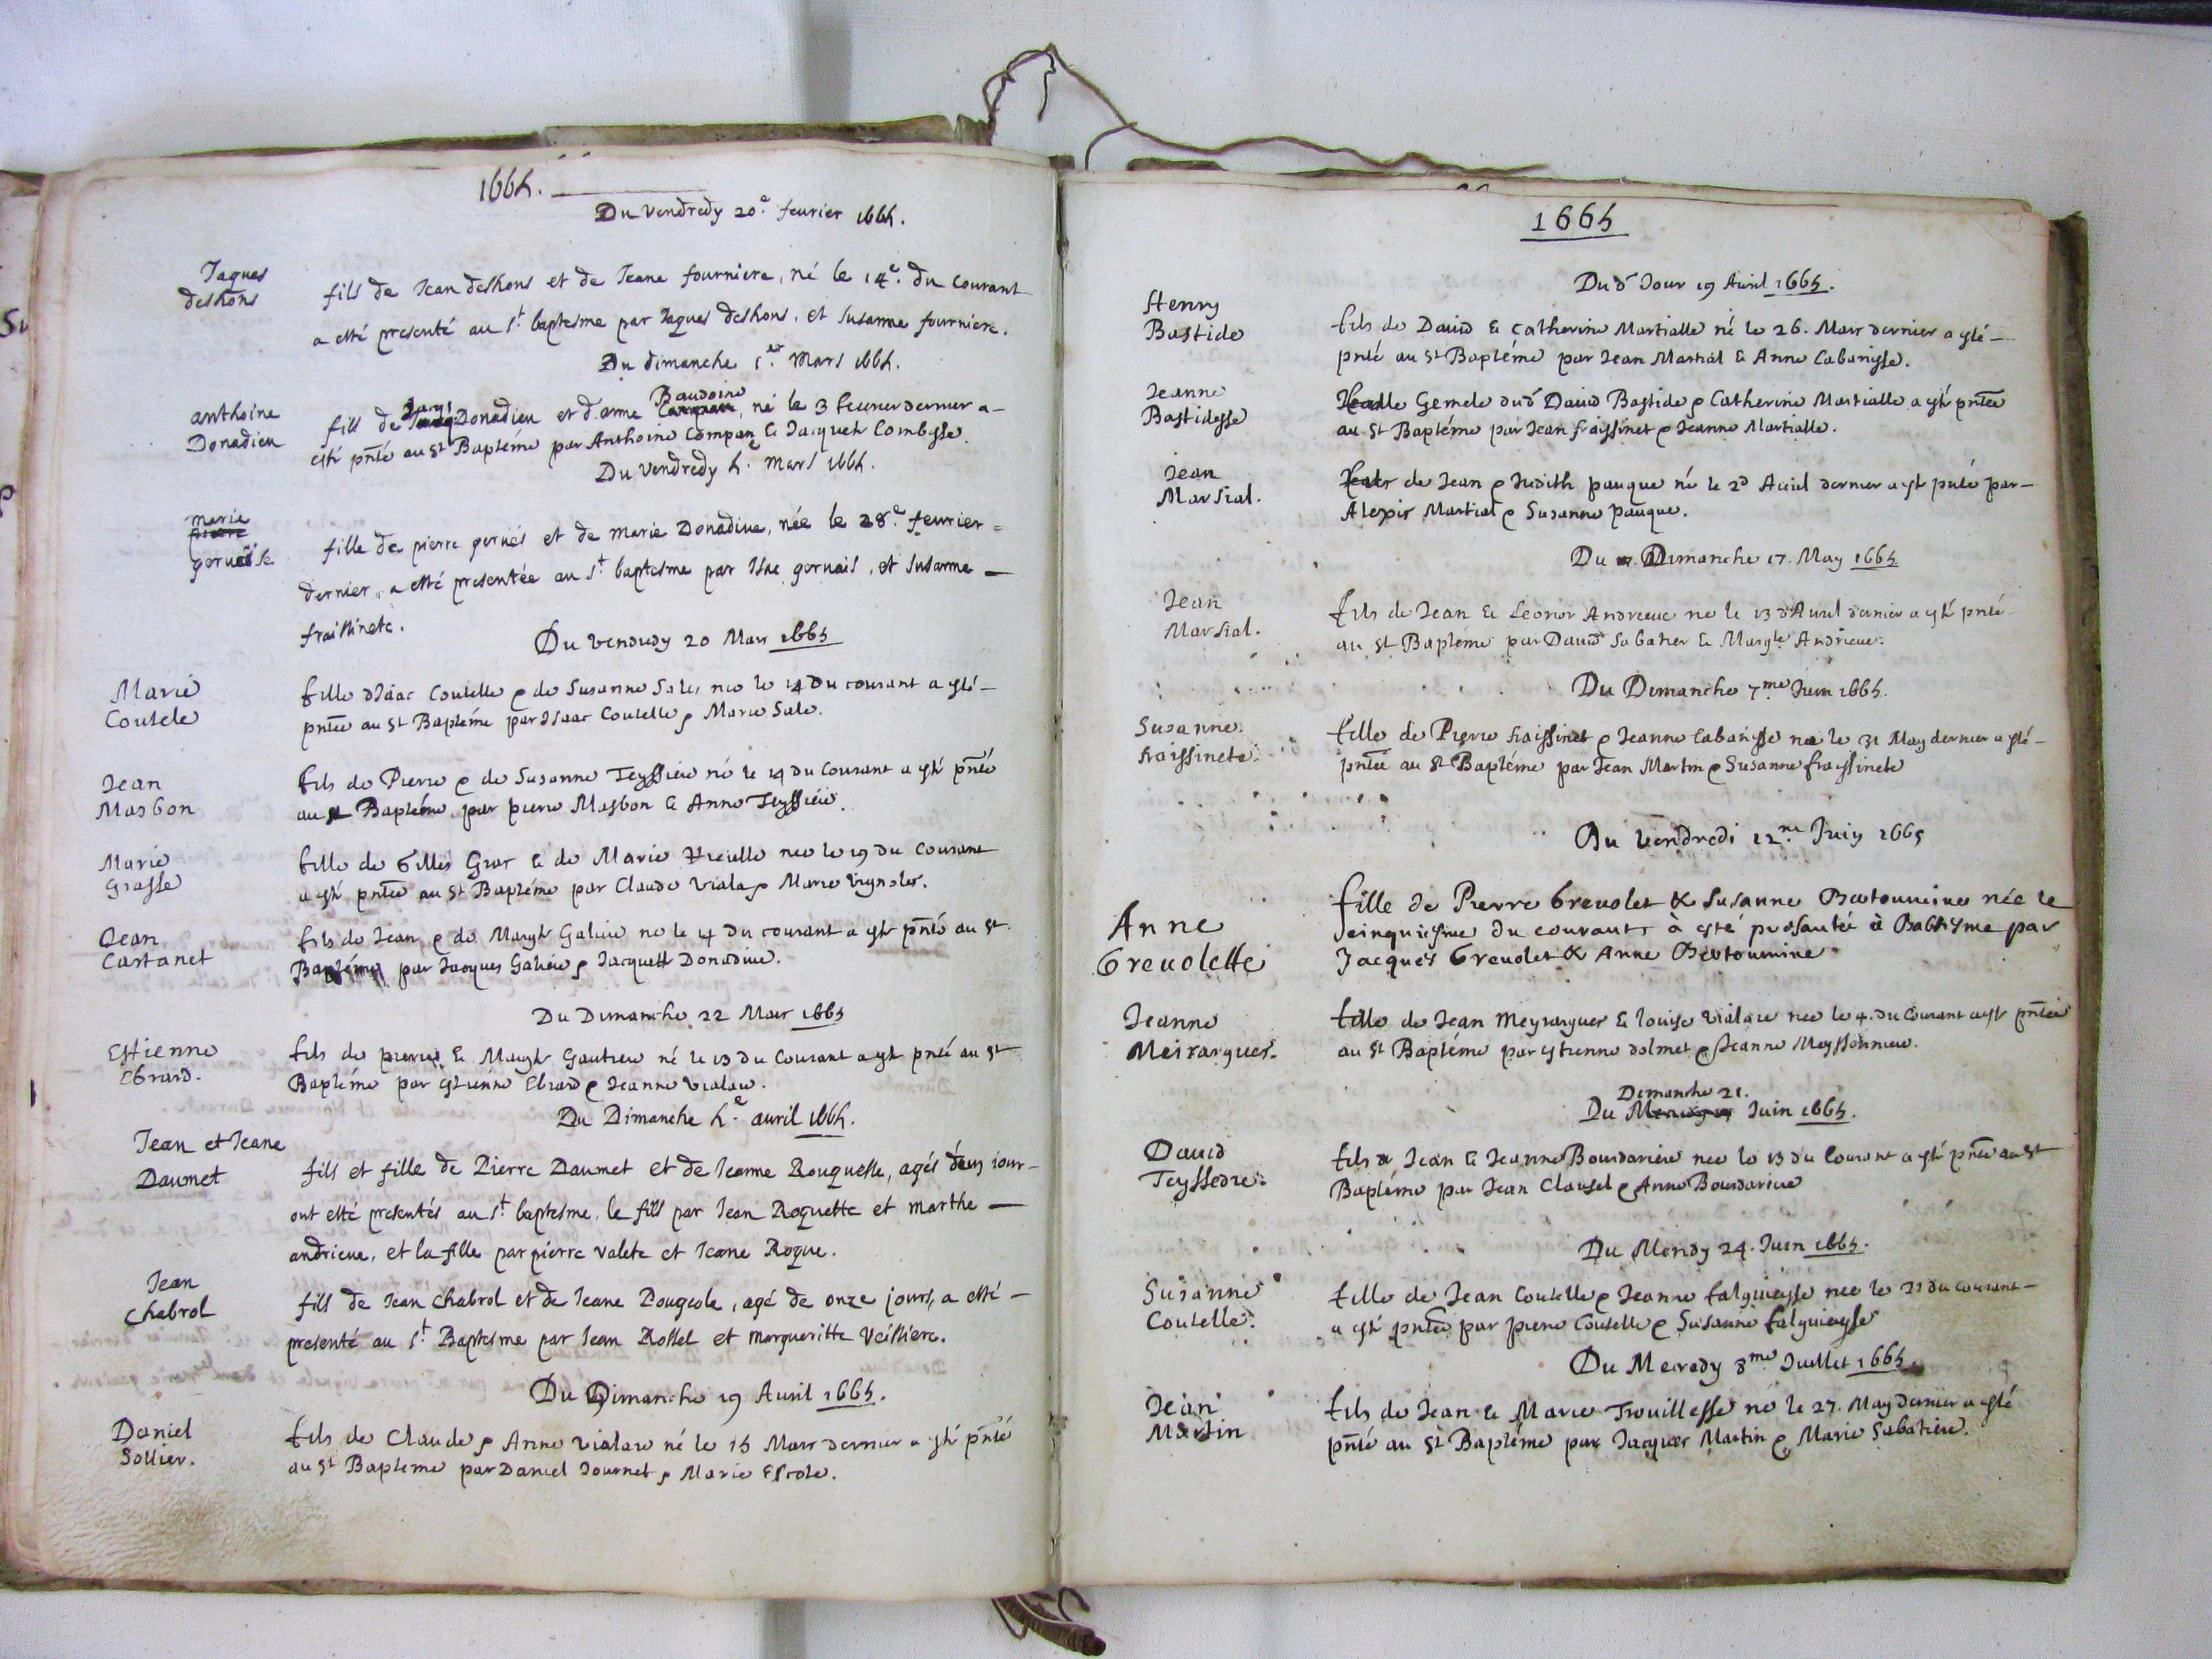 1665.
Du vendredy 20e. feurier 1665.
Jaques
deshons
fils de Jean deshons et de Jeane fourniere, né le 14e. du courant
a esté presenté au st. baptesme par Jaques deshons, et Susanne fourniere.
Du dimanche 1er. Mars 1665.
anthoine
Donadieu
Baudoine
fils de Donadieu et d'anne né le 3 feurier dernier a
esté pñté au St Baptéme par Anthoine Compan & Jacquete Combesse.
Du vendredy 5e. mars 1665.
marie
geruaise
fille de pierre geruès et de marie Donadiue, née le 28e. feurier
dernier, a esté presentée au st. baptesme par Isac geruais, et Susanne
fraissinete.
Du vendredy 20 Mars 1665
Marie
Coutele
fille d'Isaac Coutelle & de Susanne Sales nee le 14 du courant a esté
pñtée au St Baptéme par Isaac Coutelle & Marie Sale.
Jean
Masbon
fils de Pierre & de Susanne Teyssiere né le 14 du courant a esté pñté
au St Baptéme par pierre Masbon & Anne Teyssiere.
Marie
Grasse
fille de Gilles Gras & de Marie nee le 19 du courant
a esté pñtée au St Baptéme par Claude Viala & Marie Vignoles.
Jean
Castanet
fils de Jean & de Margte Galiere né le 14 du courant a esté pñté au St
Baptéme par Jacques Galiere & Jacquette Donadiue.
Du Dimanche 22 Mars 1665
Estienne
Ebrard.
fils de pierre & Margte Gautiere né le 13 du courant a esté pñté au St
Baptéme par estienne Ebrard & Jeanne Vialaue.
Du Dimanche 5e. auril 1665.
Jean et Jeane
Daumet
fils et fille de Pierre Daumet et de Jeanne Rouquette, agés deus iour
ont esté presentés au st. baptesme, le fils par Jean Roquette et marthe
andrieue, et la fille par pierre valete et Jeane Roque.
Jean
Chabrol
fils de Jean chabrol et de Jeane Pougeole, agé de onze jours, a esté
presenté au st. Baptesme par Jean Rossel et margueritte Veissiere.
Du Dimanche 19 Auril 1665.
Daniel
Sollier.
fils de Claude & Anne vialaue né le 15 Mars dernier a esté pñté
au St Baptéme par Daniel Journet & Marie Escole.
1665
Dud. Jour 19 Auril 1665.
Henry
Bastide
fils de Dauid & Catherine Martialle né le 26. Mars dernier a esté
pnté au St Baptéme par Jean Martial & Anne Cabanisse.
Jeanne
Bastidesse
Gemele dud. Dauid Bastide & Catherine Martialle a esté pñtée
au St Baptéme par Jean fraissinet & Jeanne Martialle.
Jean
Martial.
de Jean & Judith pauque né le 2d Auril dernier a esté pnté par
Alexis Martial & Susanne pauque.
Du Dimanche 17. May 1665
Jean
Martial.
fils de Jean & Leonor Andrieue né le 13 d'Auril dernier a esté pnté
au St Baptéme par Dauid Sabatier & Margte Andrieue.
Du Dimanche 7me Juin 1665.
Susanne
fraissinete.
fille de Pierre fraissinet & Jeanne Cabanisse née le 31 May dernier a esté
pñtée au St Baptéme par Jean Martin & Susanne fraissinete
Du Vendredi 12me Juin 1665
Anne
Greuolette
fille de Pierre Greuolet & Susanne Bertoumine née le
seinquiesme du courant à esté presantée à Babtisme par
Jacques Greuolet & Anne Bertoumine
Jeanne
Meirargues.
fille de Jean Meyrargues & louise Vialaue nee le 4. du courant a esté pñtée
au St Baptéme par estienne dolmet & Jeanne Meyssonniere.
Dimanche 21.
Du Juin 1665.
Dauid
Teyssedre.
fils de Jean & Jeanne Bourdariere nee le 13 du courant a esté pñté au St
Baptéme par Jean Clausel & Anne Bourdariere
Du Mercredy 24. Juin 1665.
Susanne
Coutelle.
fille de Jean Coutelle & Jeanne falguieysse nee le 21 du courant
a esté pñtée par pierre Coutelle & Susanne falguieysse
Du Mecredy 8me Juillet 1665.
Jean
Martin
fils de Jean & Marie Trouillesse né le 27. May dernier a esté
pñté au St Baptéme par Jacques Martin & Marie Sabatiere.